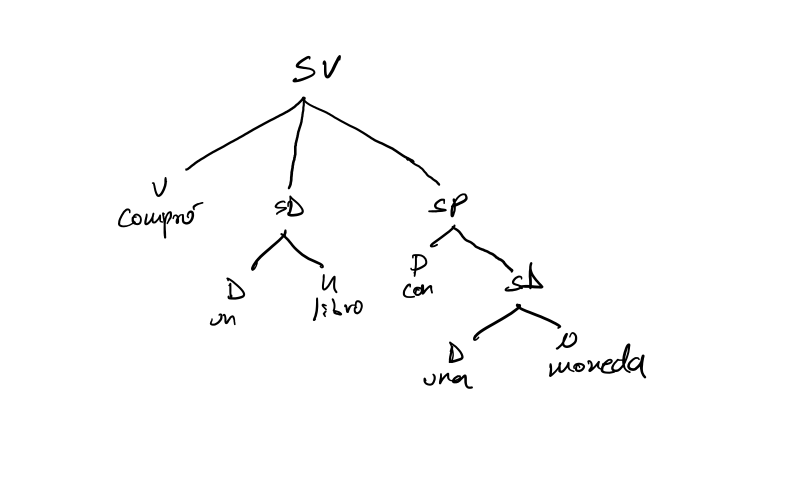 SV
V
compró
SD
SP
D
un
N
libro
P
con
SD
D
una
N
moneda